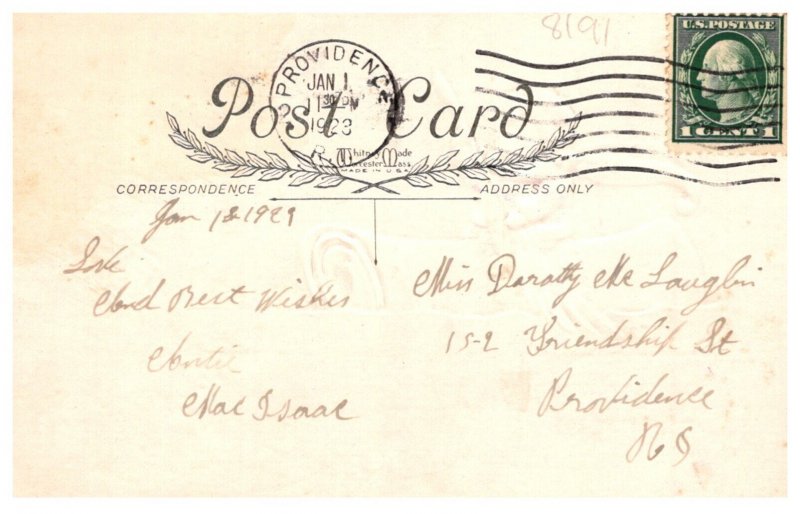 8191
U.S. POSTAGE
1 CENT 1
PROVIDENCE
JAN 1
1130 PM
1923
R.I.
Post Card
Whitney Made
Worcester Mass
MADE IN U.S.A.
CORRESPONDENCE
ADDRESS ONLY
Jan 1st 1923
Love
And Best Wishes
Antie
Mac Isaac
Miss Dorothy Mc Laughlin
152 Friendship St
Providence
R I